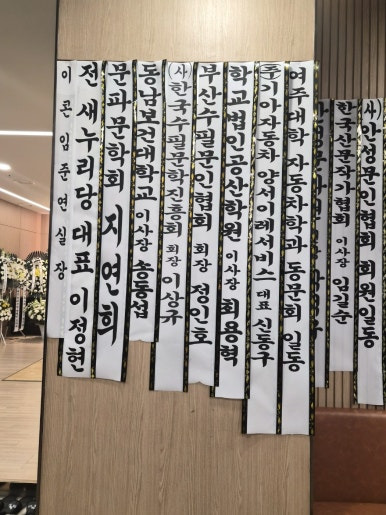 이 콘 임 준 연 실 장
전 새누리당 대표 이정현
문파문학회 지연희
동남보건대학교 이사장 송동섭
(사)한국수필문학진흥회 회장 이상규
부산수필문인협회 회장 정인호
학교법인공산학원 이사장 최용혁
(주)기아자동차 양서이레서비스 대표 신동구
여주대학 자동차학과 동문회 일동
한국산문작가협회 이사장 임길순
(사)안성문인협회 회원일동